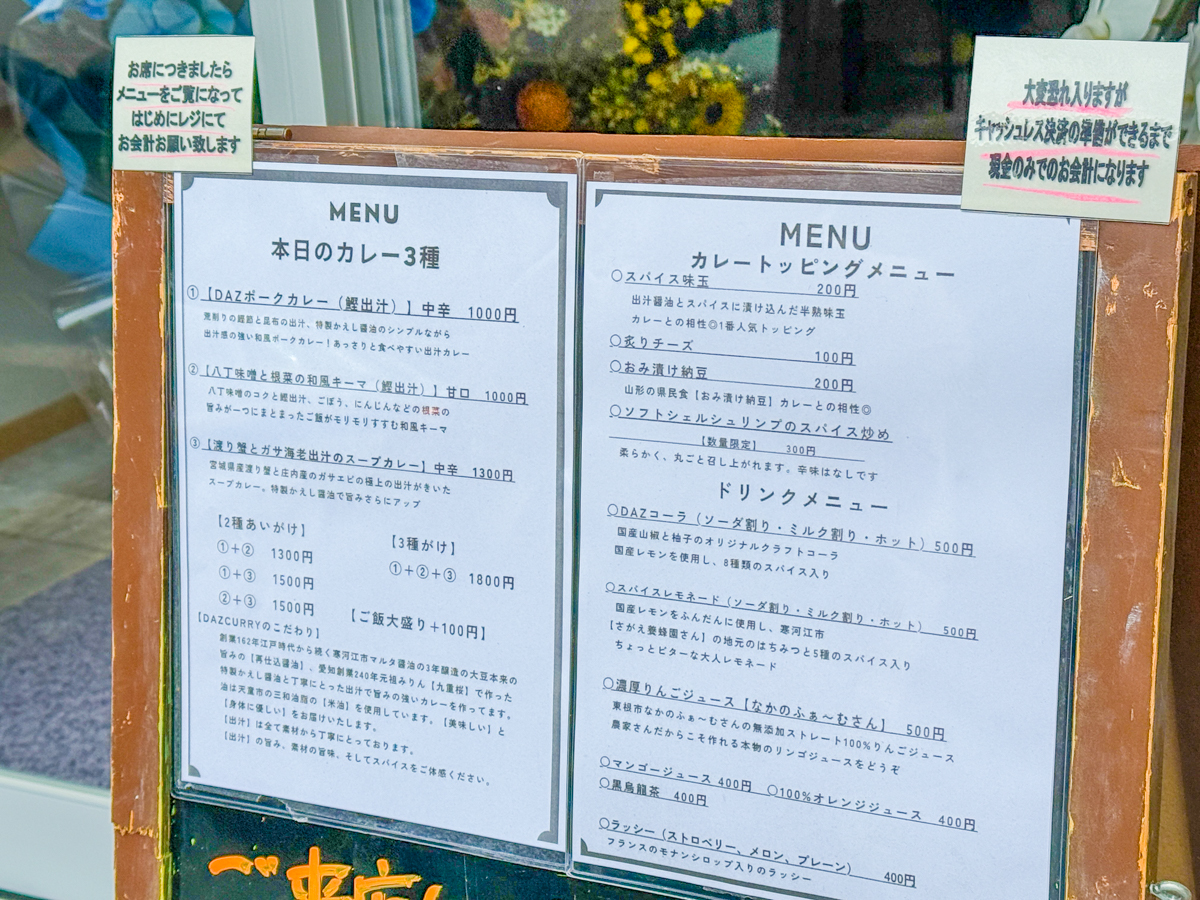 お席につきましたら
メニューをご覧になって
はじめにレジにて
お会計お願い致します
大変恐れ入りますが
キャッシュレス決済の準備ができるまで
現金のみでのお会計になります
MENU
本日のカレー3種
①【DAZポークカレー（鰹出汁）】中辛 1000円
荒削りの鰹節と昆布の出汁、特製かえし醤油のシンプルながら
出汁感の強い和風ポークカレー！あっさりと食べやすい出汁カレー
②【八丁味噌と根菜の和風キーマ（鰹出汁）】甘口 1000円
八丁味噌のコクと鰹出汁、ごぼう、にんじんなどの根菜の
旨みが一つにまとまったご飯がモリモリすすむ和風キーマ
③【渡り蟹とガサ海老出汁のスープカレー】中辛 1300円
宮城県産渡り蟹と庄内産のガサエビの極上の出汁がきいた
スープカレー。特製かえし醤油で旨みさらにアップ
【2種あいがけ】
①+② 1300円
①+③ 1500円
②+③ 1500円
【3種がけ】
①+②+③ 1800円
【ご飯大盛り+100円】
【DAZCURRYのこだわり】
創業162年江戸時代から続く寒河江市マルタ醤油の3年醸造の大豆本来の
旨みの【再仕込醤油】、愛知創業240年元祖みりん【九重桜】で作った
特製かえし醤油と丁寧にとった出汁で旨みの強いカレーを作ってます。
油は天童市の三和油脂の【米油】を使用しています。【美味しい】と
【身体に優しい】をお届けいたします。
【出汁】は全て素材から丁寧にとっております。
【出汁】の旨み、素材の旨味、そしてスパイスをご体感ください。
MENU
カレートッピングメニュー
○スパイス味玉 200円
出汁醤油とスパイスに漬け込んだ半熟味玉
カレーとの相性◎1番人気トッピング
○炙りチーズ 100円
○おみ漬け納豆 200円
山形の県民食【おみ漬け納豆】カレーとの相性◎
○ソフトシェルシュリンプのスパイス炒め
【数量限定】 300円
柔らかく、丸ごと召し上がれます。辛味はなしです
ドリンクメニュー
○DAZコーラ（ソーダ割り・ミルク割り・ホット）500円
国産山椒と柚子のオリジナルクラフトコーラ
国産レモンを使用し、8種類のスパイス入り
○スパイスレモネード（ソーダ割り・ミルク割り・ホット） 500円
国産レモンをふんだんに使用し、寒河江市
【さがえ養蜂園さん】の地元のはちみつと5種のスパイス入り
ちょっとビターな大人レモネード
○濃厚りんごジュース【なかのふぁ〜むさん】 500円
東根市なかのふぁ〜むさんの無添加ストレート100%りんごジュース
農家さんだからこそ作れる本物のリンゴジュースをどうぞ
○マンゴージュース 400円 ○100%オレンジジュース 400円
○黒烏龍茶 400円
○ラッシー（ストロベリー、メロン、プレーン） 400円
フランスのモナンシロップ入りのラッシー
ご来店